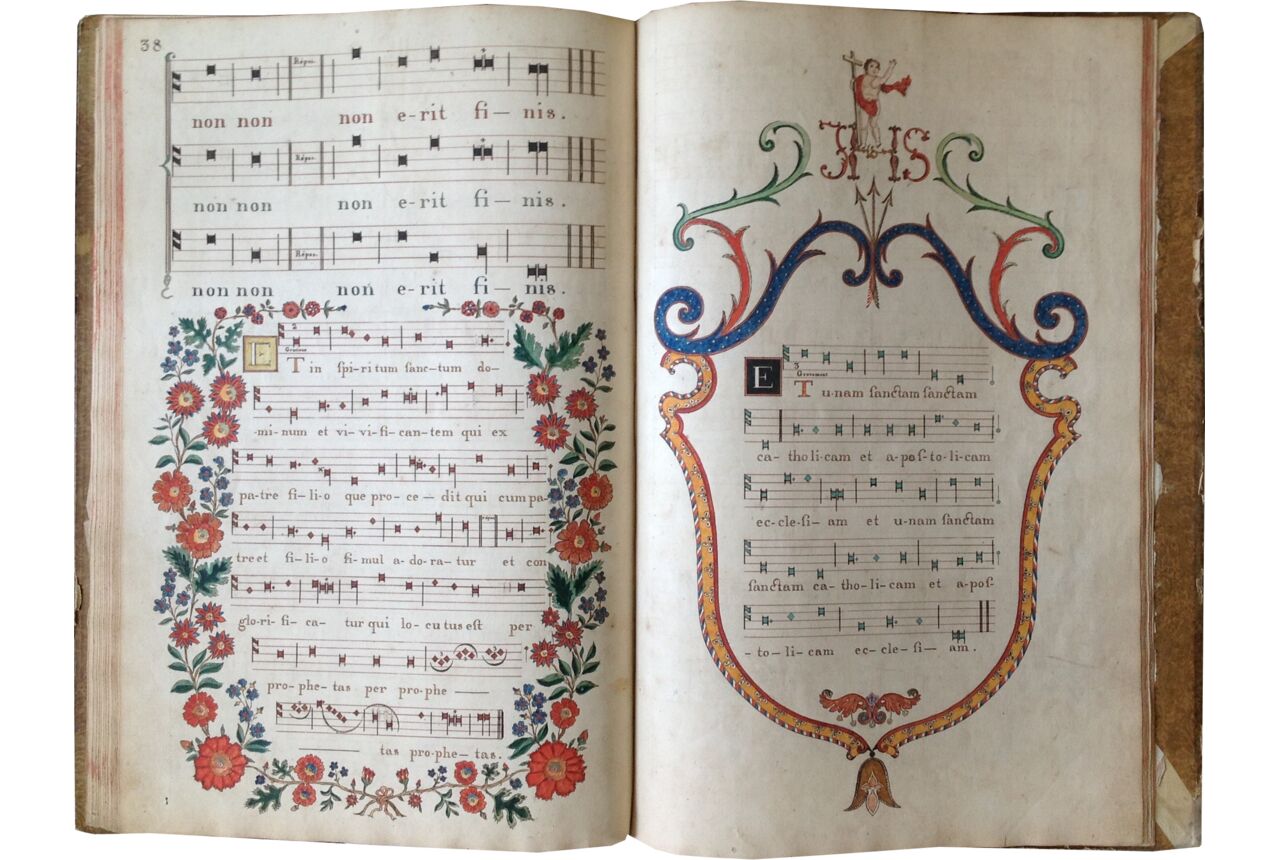 38
Répos.
non non non e-rit fi- nis.
Répos.
non non non e-rit fi- nis.
Répos.
non non non e-rit fi- nis.
2
Gracieux
ET in ſpi-ri tum ſanc-tum do-
-mi-num et vi-vi-fi-can-tem qui ex
pa-tre fi-li-o que pro-ce-dit qui cum pa-
tre et fi-li-o ſi-mul a-do-ra-tur et con
glo-ri-fi-ca-tur qui lo-cu tus eſt per
pro-phe-tas per pro-phe
tas pro-phe-tas.
JHS
3
Gravement
ET u-nam ſanctam ſanctam
ca-tho li-cam et a-poſ-to-li-cam
ec-cle-ſi-am et u-nam ſanctam
ſanctam ca-tho-li-cam et a-poſ-
-to-li-cam ec-cle-ſi-am.